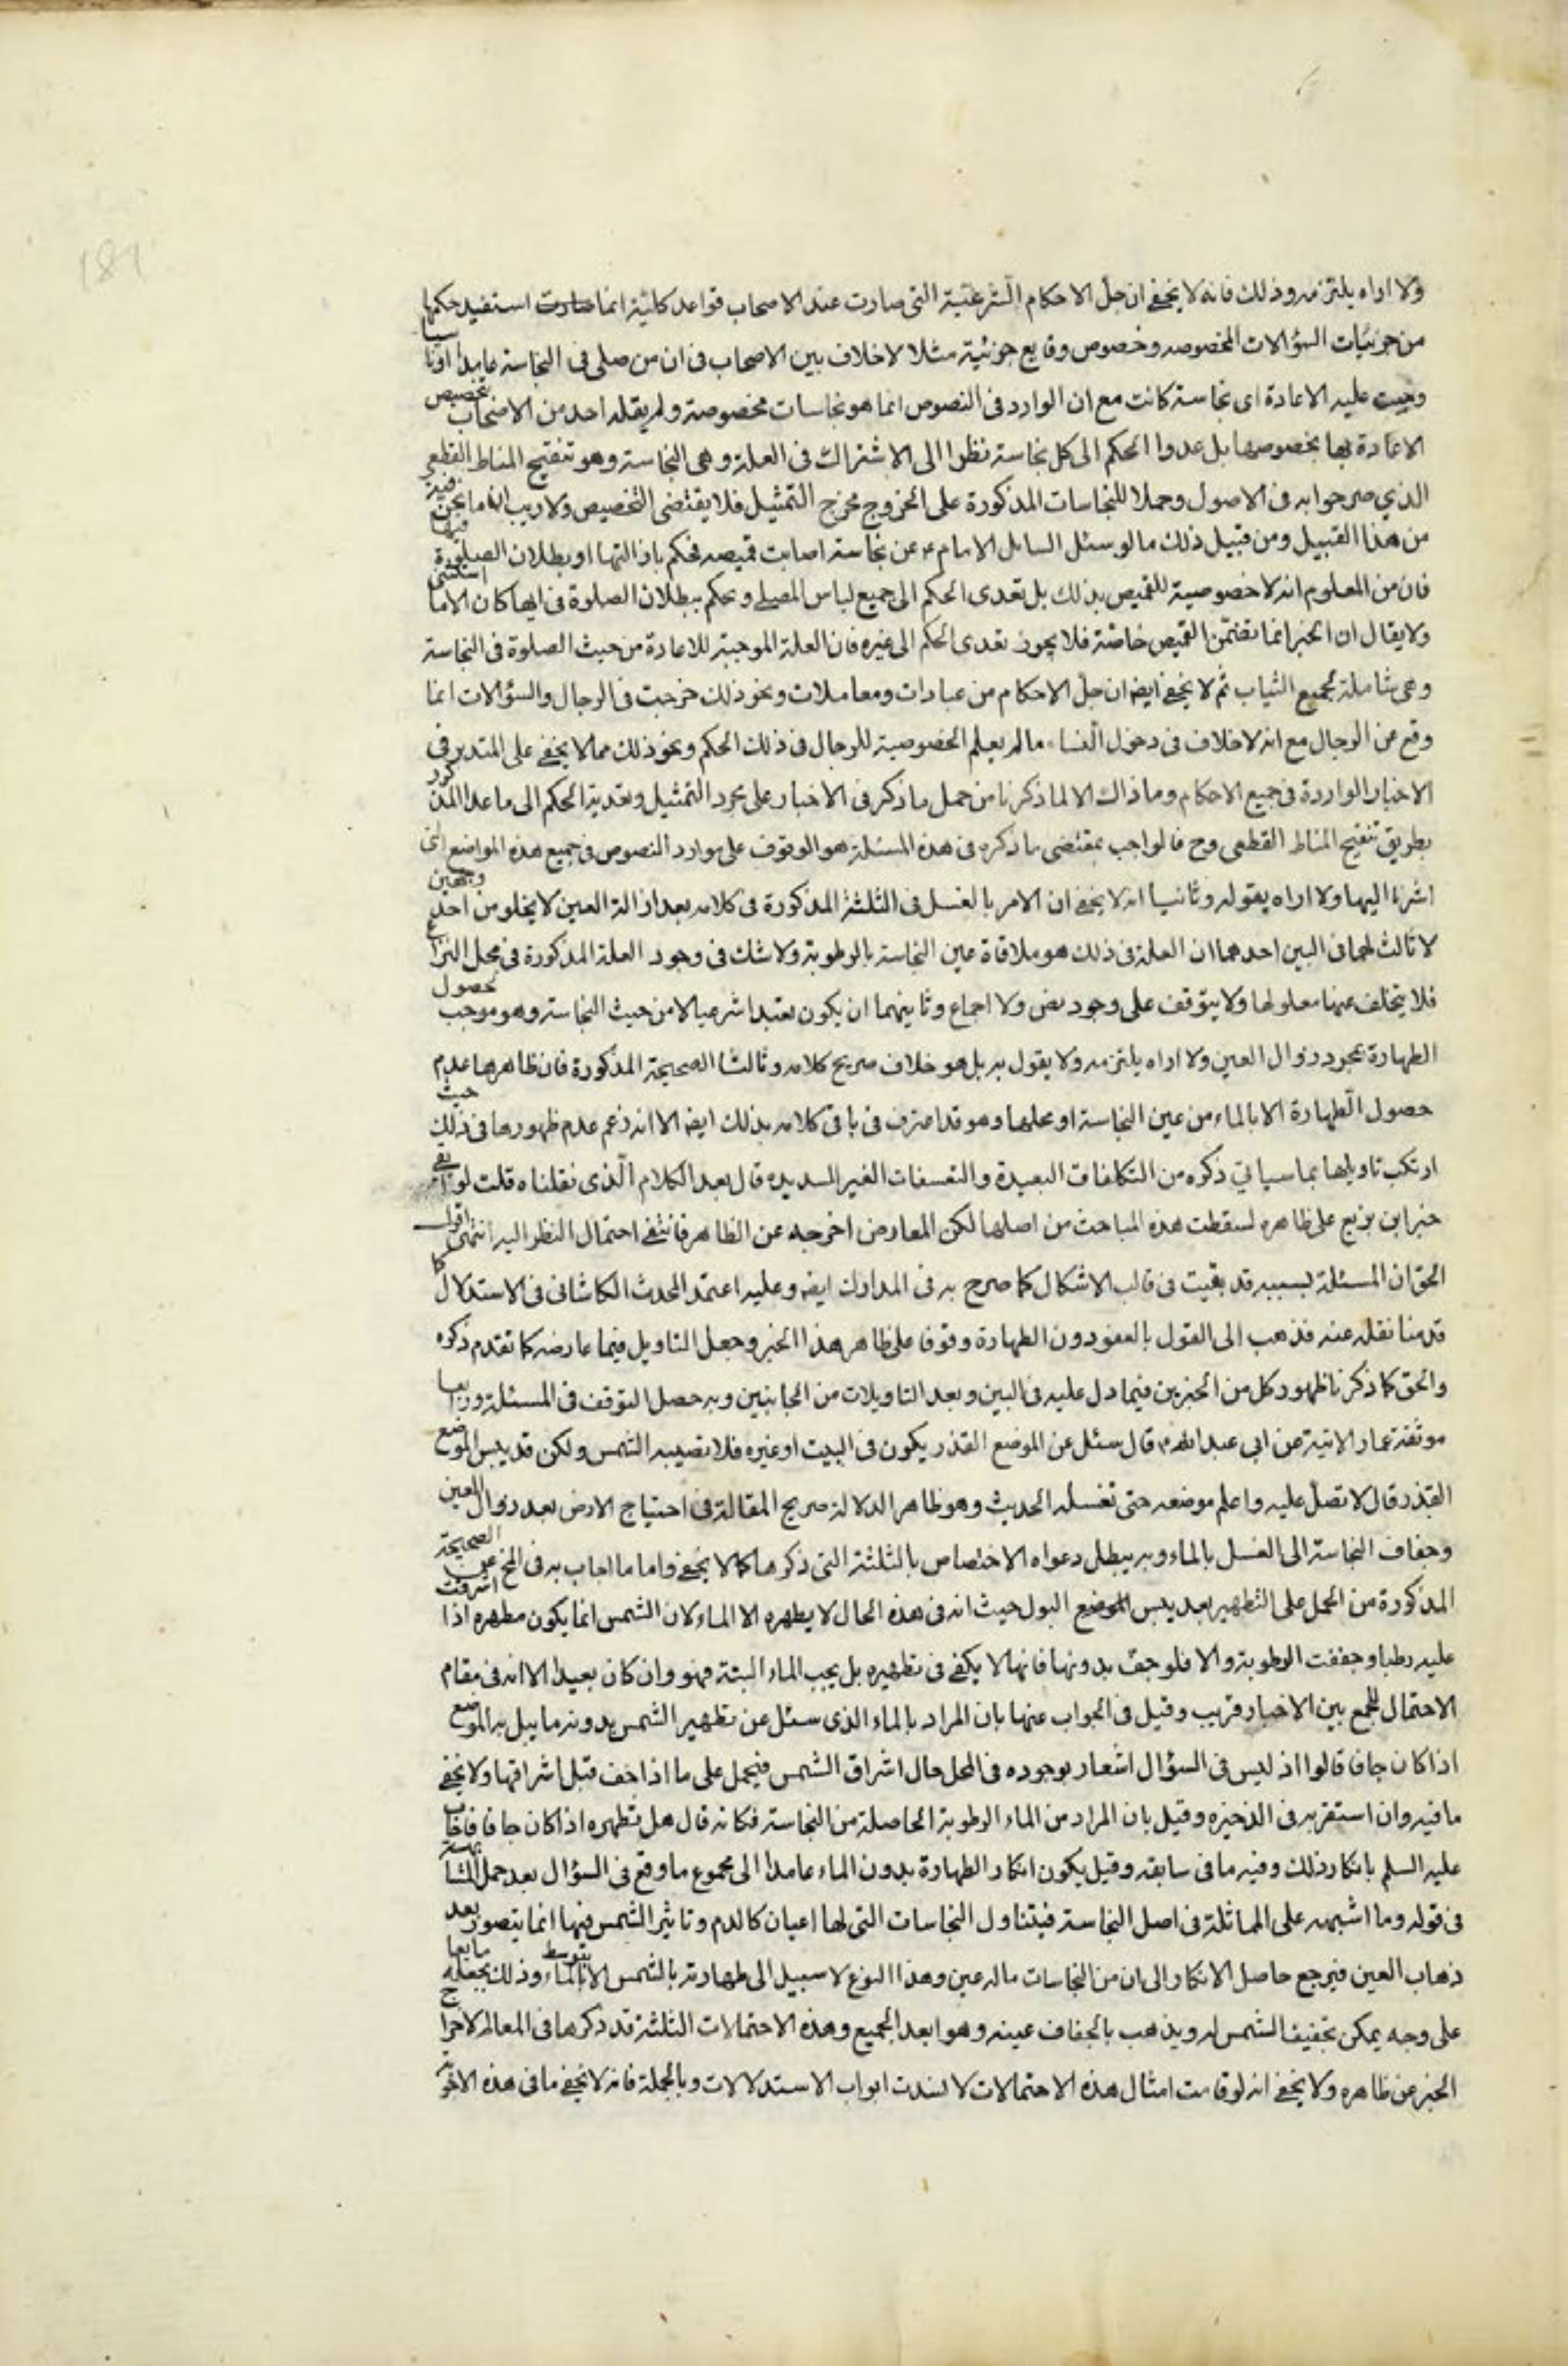 181
ولا اراه يلتزمه وذلك فانه لا يخفى ان جل الاحكام الشرعية التى صارت عند الاصحاب قواعد كلية انما صارت استفيد حكمها
من جزئيات السؤالات المخصوصه وخصوص وقايع جزئية مثلا لا خلاف بين الاصحاب فى ان من صلى فى النجاسة عامدا او ناسيا
وجبت عليه الاعادة اى نجاسة كانت مع ان الوارد فى النصوص انما هو نجاسات مخصوصة ولم يقله احد من الاصحاب بتخصيص
الاعادة بها بخصوصها بل عدوا الحكم الى كل نجاسة نظرا الى الاشتراك فى العلة وهى النجاسة وهو تنقيح المناط القطعى
الذي صرحوا به فى الاصول وحملا للنجاسات المذكورة على الخروج مخرج التمثيل فلا يقتضى التخصيص ولا ريب ان ما نحن فيه
من هذا القبيل ومن قبيل ذلك ما لو سئل السايل الامام ع عن نجاسة اصابت قميصه فحكم باذالتها او بطلان الصلوة فيها
فان من المعلوم انه لا خصوصية للقميص بذلك بل تعدى الحكم الى جميع لباس المصلى ويحكم ببطلان الصلوة فى ايها كان الا ما استثنى
ولا يقال ان الخبر انما تضمن القميص خاصة فلا يجوز تعدى الحكم الى غيره فان العلة الموجبة للاعادة من حيث الصلوة فى النجاسة
وهى شاملة لجميع الثياب ثم لا يخفى ايضه ان جل الاحكام من عبادات ومعاملات ونحو ذلك خرجت فى الرجال والسؤالات انما
وقع عن الرجال مع انه لا خلاف فى دخول النساء ما لم يعلم الخصوصية للرجال فى ذلك الحكم ونحو ذلك مما لا يخفى على المتدبر فى
الاخبار الواردة فى جميع الاحكام وما ذاك الا لما ذكرنا من حمل ما ذكر فى الاخبار على مجرد التمثيل وتعدية الحكم الى ما عدا المذكور
بطريق تنقيح المناط القطعى وح فالواجب بمقتضى ما ذكره فى هذه المسئلة هو الوقوف على موارد النصوص فى جميع هذه المواضع التى
اشرنا اليها ولا اراه يقوله وثانيا انه لا يخفى ان الامر بالغسل فى الثلثة المذكورة فى كلامه بعد ازالة العين لا يخلو من احد وجهين
لا ثالث لهما فى البين احدهما ان العلة فى ذلك هو ملاقاة عين النجاسة بالرطوبة ولا شك فى وجود العلة المذكورة فى محل النزاع
فلا يتخلف عنها معلولها ولا يتوقف على وجود نص ولا اجماع وثانيهما ان يكون تعبدا شرعيا لا من حيث النجاسة وهو موجب لحصول
الطهارة بمجرد زوال العين ولا اراه يلتزمه ولا يقول به بل هو خلاف صريح كلامه وثالثا الصحيحة المذكورة فان ظاهرها عدم
حصول الطهارة الا بالماء من عين النجاسة او محلها وهو قد اعترف فى باقى كلامه بذلك ايضه الا انه زعم عدم ظهورها فى ذلك حيث
ارتكب تاويلها بما سياتي ذكره من التكلفات البعيدة والتعسفات الغير السديده قال بعد الكلام الذى نقلناه قلت لو بقى
خبر ابن بزيع على ظاهره لسقطت هذه المباحث من اصلها لكن المعارض اخرجه عن الظاهر فانتفى احتمال النظر اليه انتهى اقول
الحق ان المسئلة بسببه قد بقيت فى قالب الاشكال كما صرح به فى المدارك ايضه وعليه اعتمد المحدث الكاشانى فى الاستدلال كما
قدمنا نقله عنه فذهب الى القول بالعفو دون الطهارة وقوفا على ظاهر هذا الخبر وجعل التاويل فيما عارضه كما تقدم ذكره
والحق كما ذكرنا ظهور كل من الخبرين فيما دل عليه فى البين وبعد التاويلات من الجانبين وبه حصل التوقف فى المسئلة ورابعا
موثقة عمار الاتية عن ابى عبد الله ع قال سئل عن الموضع القذر يكون فى البيت او غيره فلا تصيبه الشمس ولكن قد يبس الموضع
القذر قال لا تصل عليه واعلم موضعه حتى تغسله الحديث وهو ظاهر الدلالة صريح المقالة فى احتياج الارض بعد زوال العين
وجفاف النجاسة الى الغسل بالماء وبه يبطل دعواه الاختصاص بالثلثة التى ذكرها كما لا يخفى واما ما اجاب به فى الخ عن الصحيحة
المذكورة من الحمل على التطهير بعد يبس الموضع البول حيث انه فى هذه الحال لا يطهره الا الماء لان الشمس انما يكون مطهره اذا اشرقت
عليه رطبا وجففت الرطوبة والا فلو جف بدونها فانها لا يكفى فى تطهيره بل يجب الماء البتة فهو وان كان بعيدا الا انه فى مقام
الاحتمال للجمع بين الاخبار قريب وقيل فى الجواب عنها بان المراد بالماء الذى سئل عن تطهير الشمس بدونه ما يبل به الموضع
اذا كان جافا قالوا اذ ليس فى السؤال اشعار بوجوده فى المحل حال اشراق الشمس فيحمل على ما اذا جف قبل اشراقها ولا يخفى
ما فيه وان استقر به فى الذخيره وقيل بان المراد من الماء الرطوبة الحاصلة من النجاسة فكانه قال هل تطهره اذا كان جافا فاجاب
عليه السلم بانكار ذلك وفيه ما فى سابقه وقيل يكون انكار الطهارة بدون الماء عامدا الى مجموع ما وقع فى السؤال بعد حمل المشابهة
فى قوله وما اشبهه على المماثلة فى اصل النجاسة فيتناول النجاسات التى لها اعيان كالدم وتاثير الشمس فيها انما يتصور بعد
ذهاب العين فيرجع حاصل الانكار الى ان من النجاسات ماله عين وهذا النوع لا سبيل الى طهارته بالشمس الا بتوسط الماء وذلك بجعله مايعا
على وجه يمكن تجفيف الشمس له ويذهب بالجفاف عينه وهو ابعد الجميع وهذه الاحتمالات الثلثة قد ذكرها فى المعالم لاخراج
الخبر عن ظاهره ولا يخفى انه لو قامت امثال هذه الاحتمالات لانسدت ابواب الاستدلالات وبالجملة فانه لا يخفى ما فى هذه